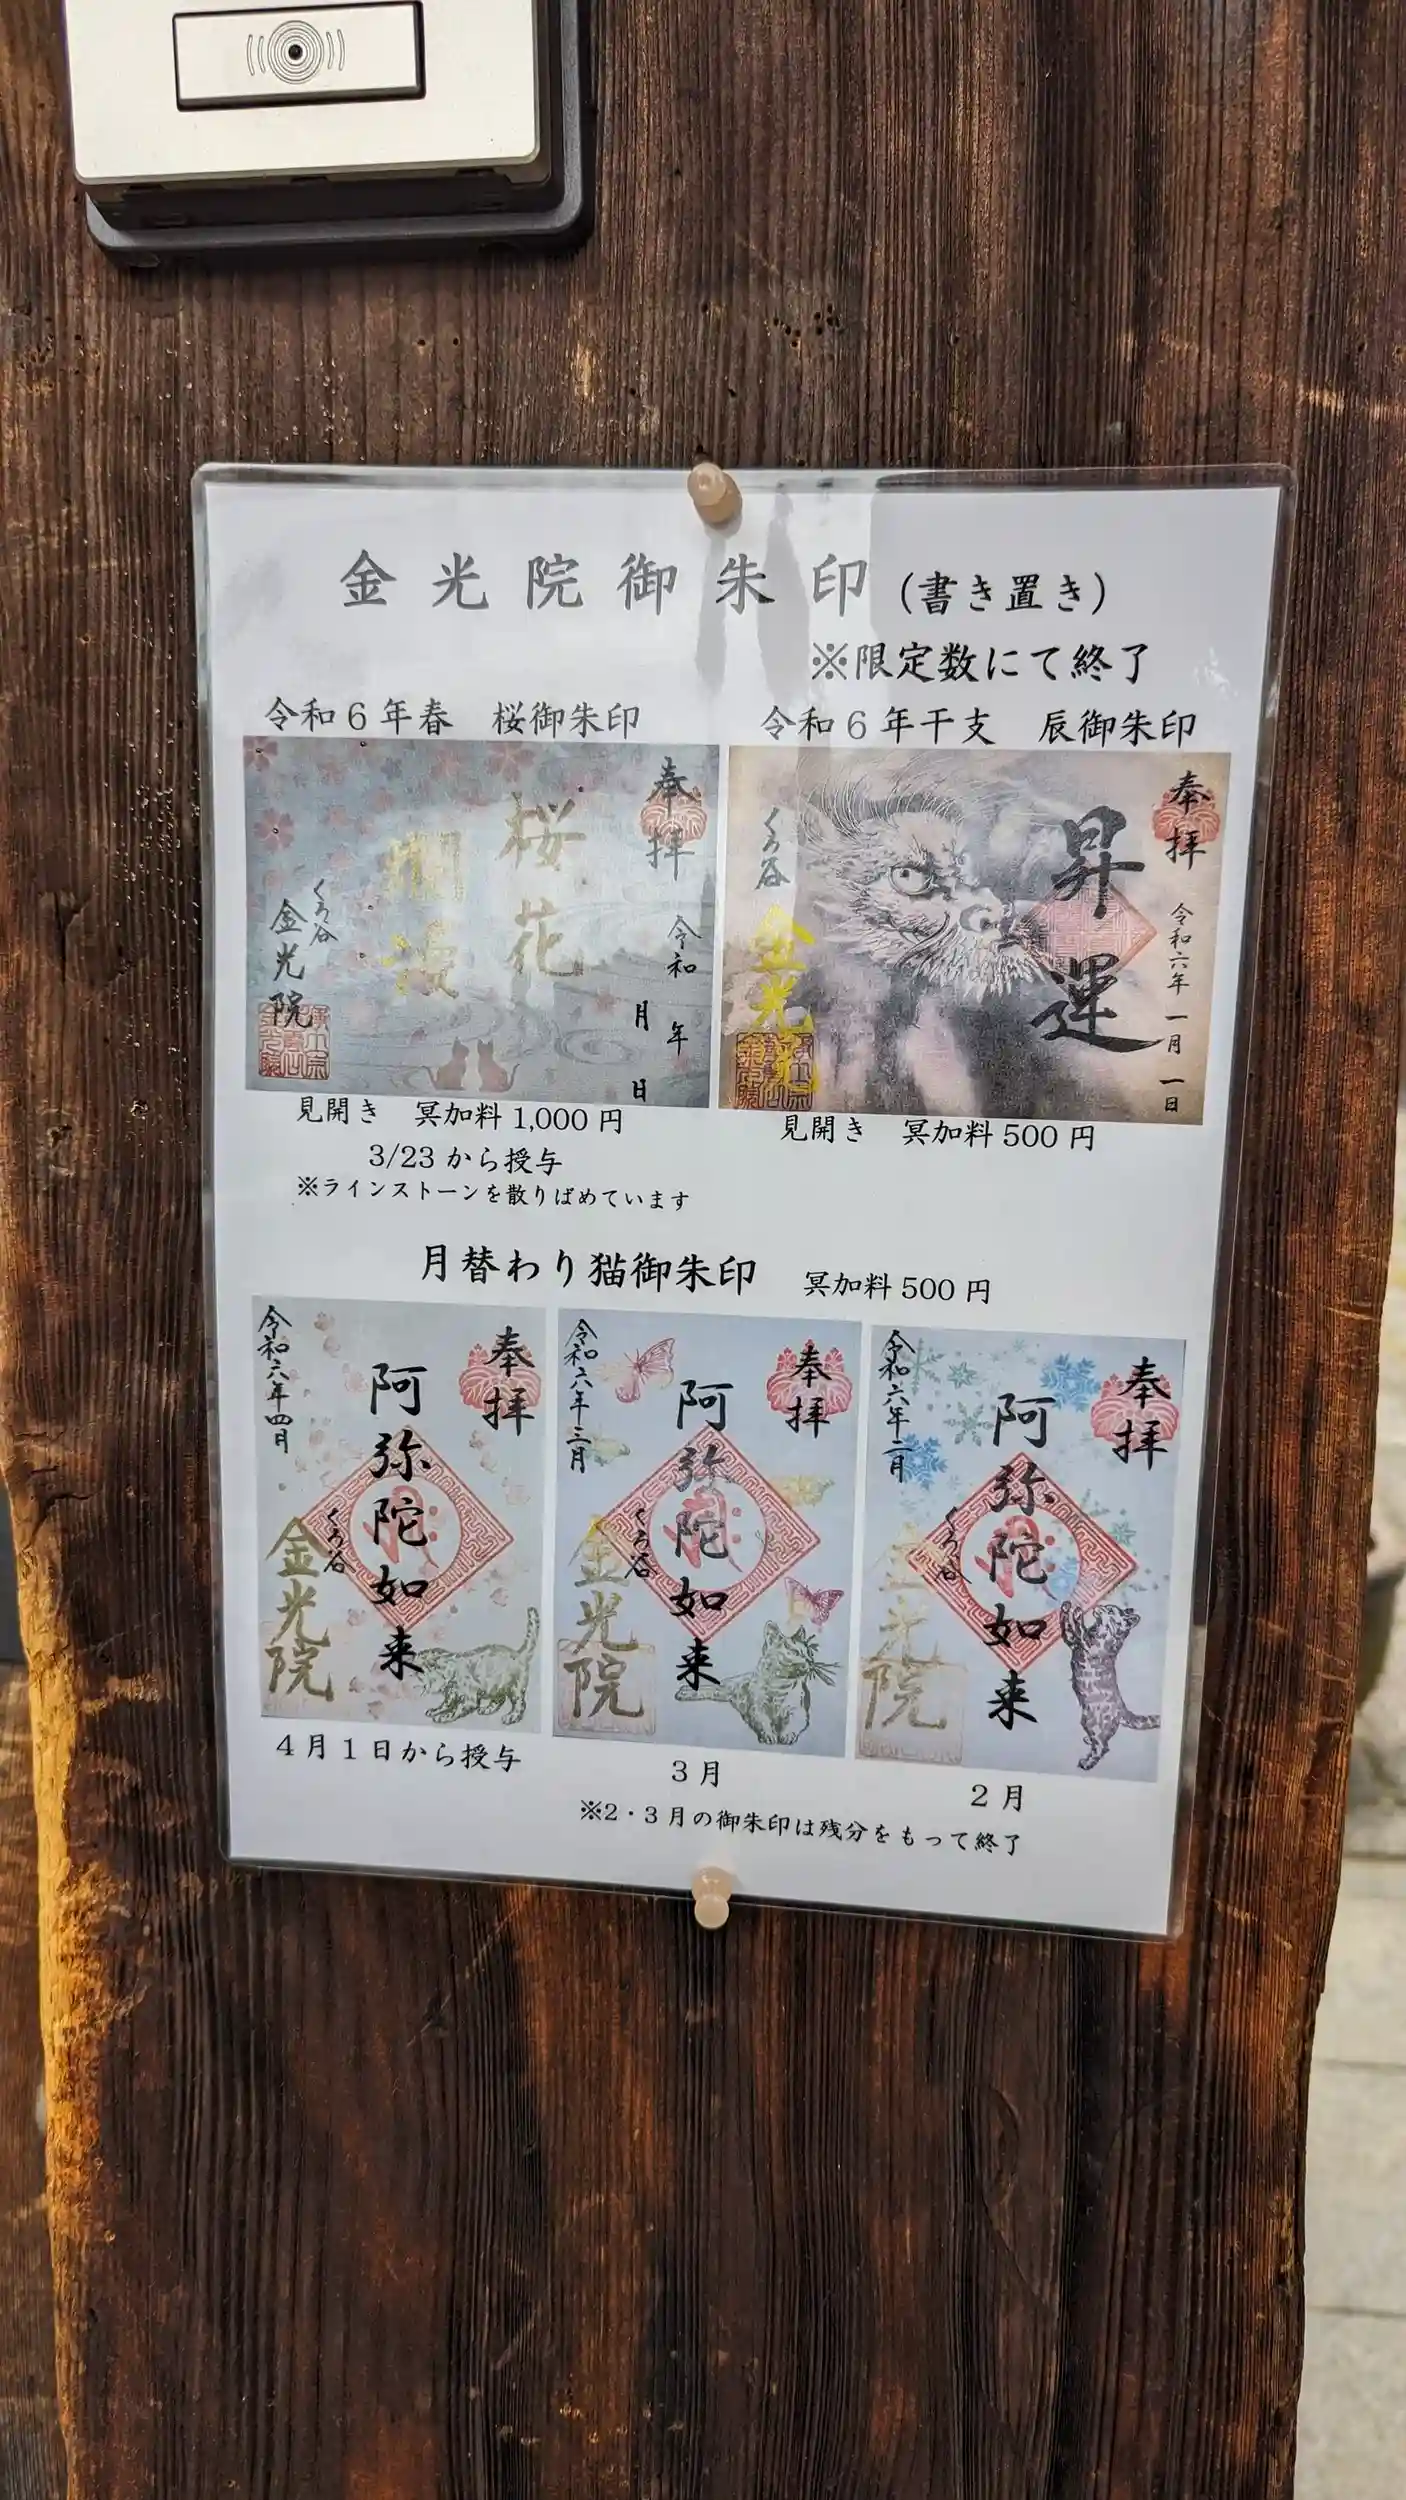 金光院御朱印(書き置き)
※限定数にて終了
令和6年春 桜御朱印
令和6年干支 辰御朱印
奉拝
桜花
爛漫
令和 年
月 日
くろ谷
金光院
奉拝
昇運
令和六年一月一日
くろ谷
金光院
見開き 冥加料1,000円
3/23から授与
※ラインストーンを散りばめています
見開き 冥加料500円
月替わり猫御朱印 冥加料500円
奉拝
阿弥陀如来
令和六年四月
くろ谷
金光院
奉拝
阿弥陀如来
令和六年三月
くろ谷
金光院
奉拝
阿弥陀如来
令和六年二月
くろ谷
金光院
4月1日から授与
3月
2月
※2・3月の御朱印は残分をもって終了